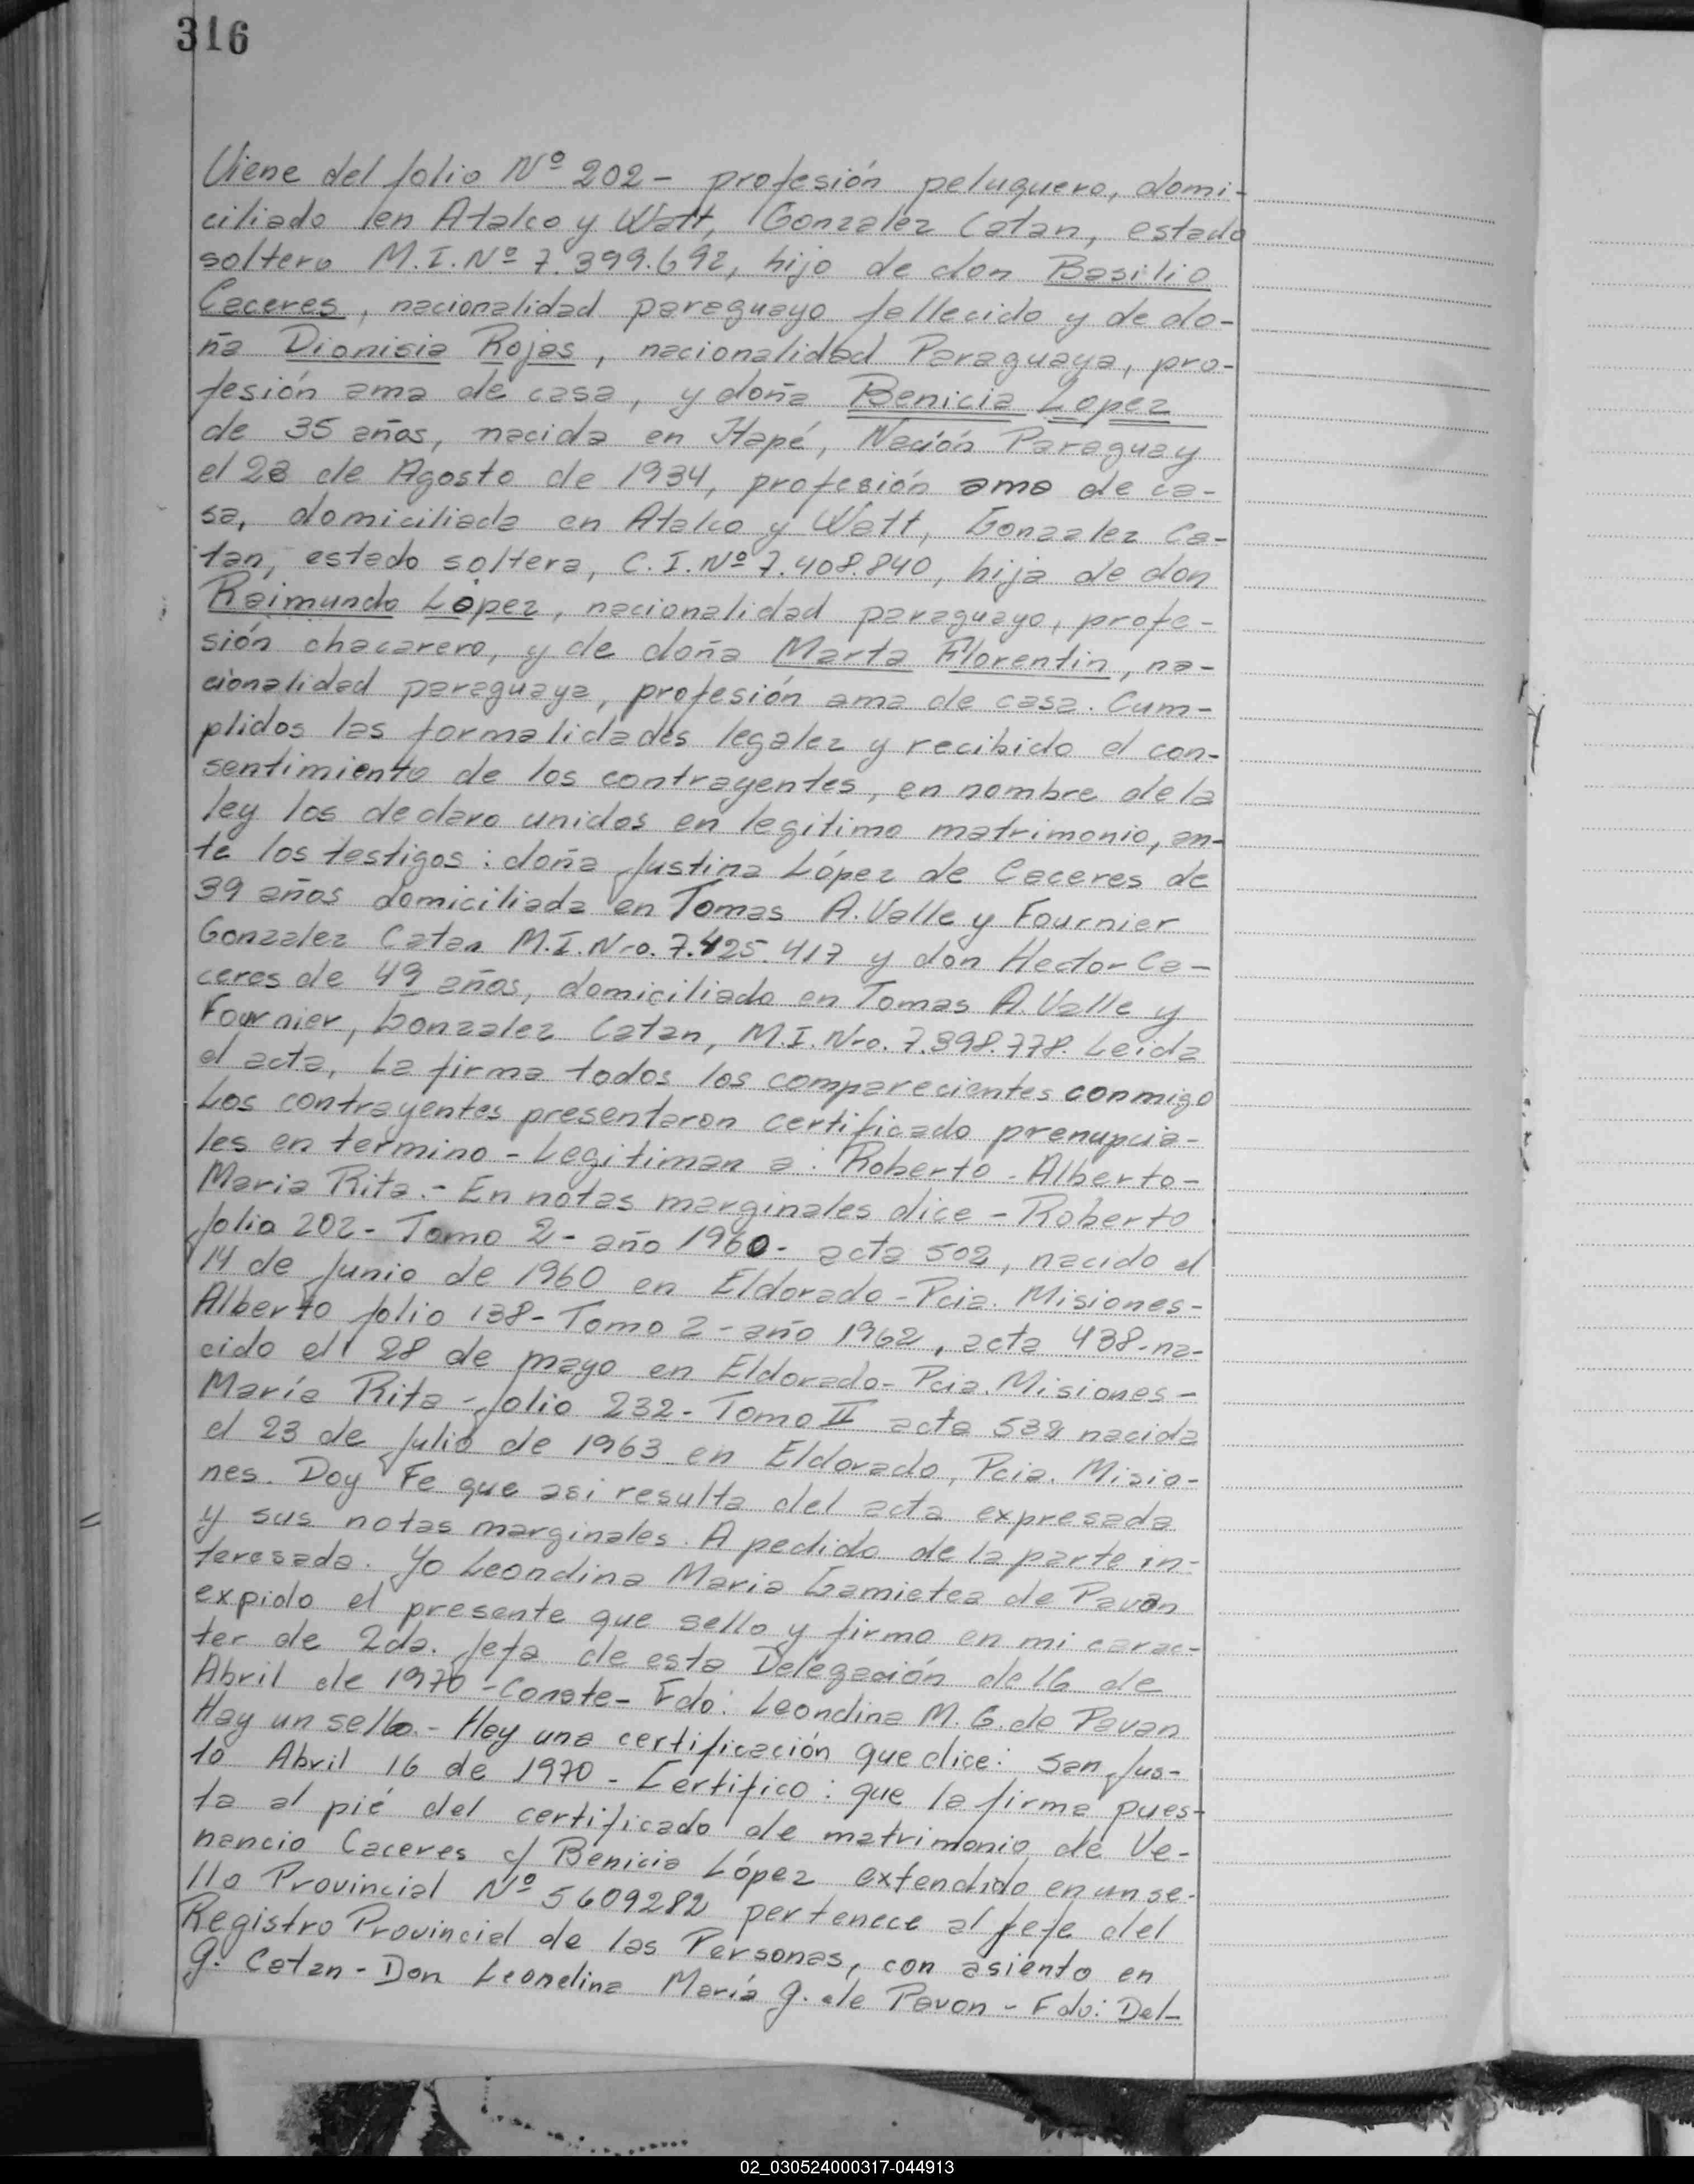 316
Viene del folio Nº 202 - profesión peluquero, domi-
ciliado en Atalco y Watt, Gonzalez Catan, estado
soltero M.I. Nº 7.399.692, hijo de don Basilio
Caceres, nacionalidad paraguayo fallecido y de do-
ña Dionisia Rojas, nacionalidad Paraguaya, pro-
fesión ama de casa, y doña Benicia Lopez
de 35 años, nacida en Itapé, Nación Paraguay
el 23 de Agosto de 1934, profesión ama de ca-
sa, domiciliada en Atalco y Watt, Gonzalez Ca-
tan, estado soltera, C.I. Nº 7.408.840, hija de don
Raimundo Lopez, nacionalidad paraguayo, profe-
sión chacarero, y de doña Marta Florentin, na-
cionalidad paraguaya, profesión ama de casa. Cum-
plidos las formalidades legalez y recibido el con-
sentimiento de los contrayentes, en nombre de la
ley los declaro unidos en legitimo matrimonio, an-
te los testigos: doña Justina López de Caceres de
39 años domiciliada en Tomas A. Valle y Fournier
Gonzalez Catan M.I. Nro. 7.425.417 y don Hector Ca-
ceres de 49 años, domiciliado en Tomas A. Valle y
Fournier, Gonzalez Catan, M.I. Nro. 7.398.778. Leida
el acta, La firma todos los comparecientes conmigo
Los contrayentes presentaron certificado prenupcia-
les en termino - Legitiman a: Roberto - Alberto -
Maria Rita. - En notas marginales dice - Roberto
folio 202 - Tomo 2 - año 1960 - acta 502, nacido el
14 de Junio de 1960 en Eldorado - Pcia. Misiones -
Alberto folio 138 - Tomo 2 - año 1962, acta 438 - na-
cido el 28 de mayo en Eldorado - Pcia. Misiones -
María Rita - folio 232 - Tomo II acta 532 nacida
el 23 de Julio de 1963 en Eldorado, Pcia. Misio-
nes. Doy Fe que asi resulta del acta expresada
y sus notas marginales. A pedido de la parte in-
teresada. Yo Leondina Maria Gamietea de Pavan
expido el presente que sello y firmo en mi carac-
ter de 2da. Jefa de esta Delegación de 16 de
Abril de 1970 - Conste - Fdo: Leondina M. G. de Pavan
Hay un sello. - Hay una certificación que dice: San Jus-
to Abril 16 de 1970 - Certifico: que la firma pues-
ta al pié del certificado de matrimonio de Ve-
nancio Caceres c/ Benicia López extendido en un se-
llo Provincial Nº 5609282 pertenece al Jefe del
Registro Provincial de las Personas, con asiento en
G. Catan - Don Leondina María G. de Pavon - Fdo: Del-
02_030524000317-044913